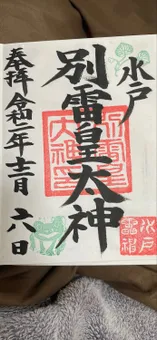 水戸
別雷皇太神
奉拝 令和二年十二月六日
別雷皇
太神印
水戸